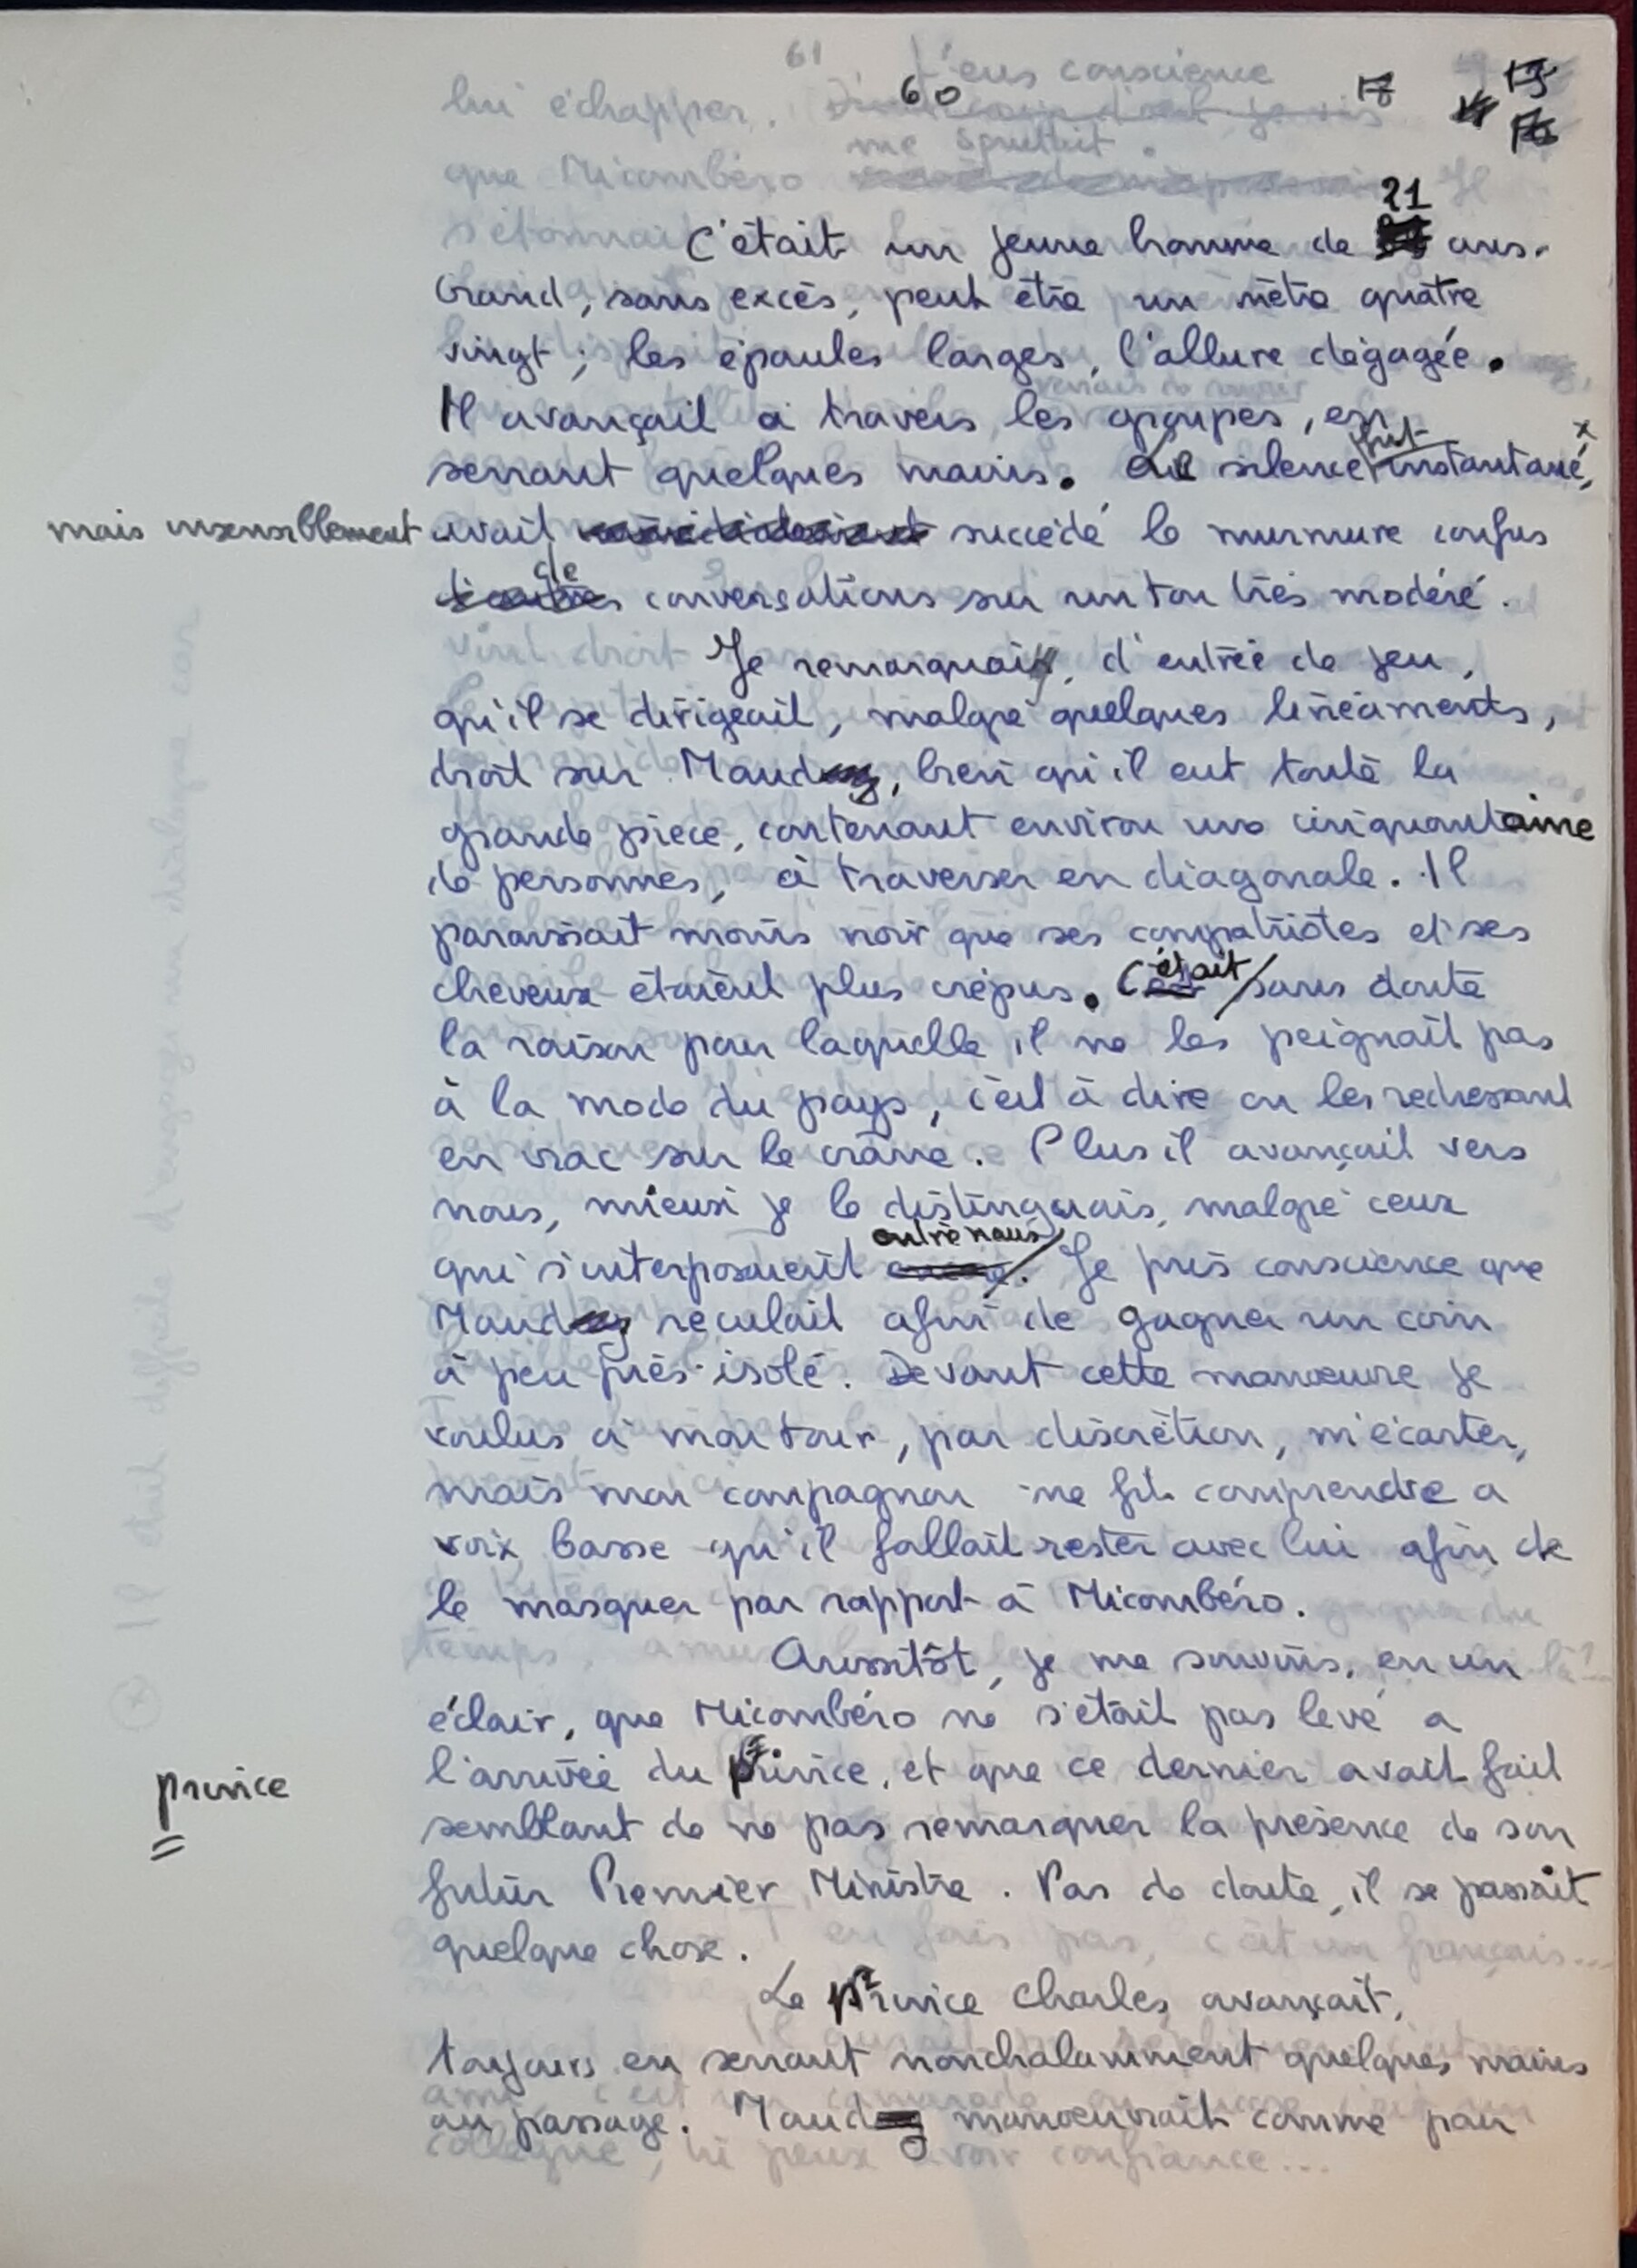 60
17
19
C'était un jeune homme de 21 ans.
Grand, sans excès, peut être un mètre quatre
vingt ; les épaules larges, l'allure dégagée.
Il avançait à travers les groupes, en
serrant quelques mains. Le silence fut instantané,
mais insensiblement avait succédé le murmure confus
de conversations sur un ton très modéré.
Je remarquai, d'entrée de jeu,
qu'il se dirigeait, malgré quelques linéaments,
droit sur Maud, bien qu'il eut toute la
grande pièce, contenant environ une cinquantaine
de personnes, à traverser en diagonale. Il
paraissait moins noir que ses compatriotes et ses
cheveux étaient plus crépus. C'était sans doute
la raison pour laquelle il ne les peignait pas
à la mode du pays, c'est à dire en les redressant
en vrac sur le crâne. Plus il avançait vers
nous, mieux je le distinguais, malgré ceux
qui s'interposaient entre nous. Je pris conscience que
Maud reculait afin de gagner un coin
à peu près isolé. Devant cette manœuvre je
voulus à mon tour, par discrétion, m'écarter,
mais mon compagnon me fit comprendre a
voix basse qu'il fallait rester avec lui afin de
le masquer par rapport à Micombéro.
Aussitôt, je me souvins, en un
éclair, que Micombéro ne s'était pas levé a
l'arrivée du prince, et que ce dernier avait fait
prince
semblant de ne pas remarquer la présence de son
futur Premier Ministre. Pas de doute, il se passait
quelque chose.
Le prince Charles, avançait,
toujours en serrant nonchalamment quelques mains
au passage. Maud manoeuvrait comme pour